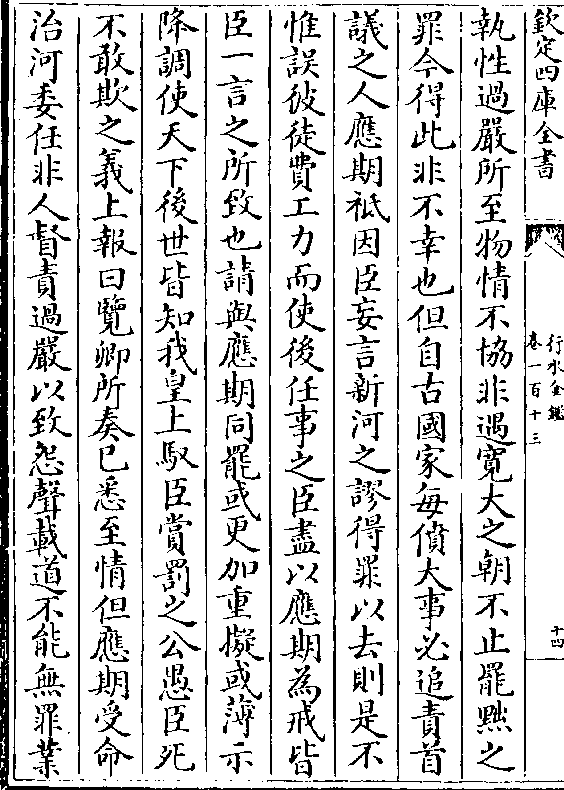 欽定四庫全書
行水金鑑
卷一百十三
十四
執性過嚴所至物情不協非遇寛大之朝不止罷黜之
罪今得此非不幸也但自古國家每僨大事必追責首
議之人應期祇因臣妄言新河之謬得罪以去則是不
惟誤彼徒費工力而使後任事之臣盡以應期為戒皆
臣一言之所致也請與應期同罷或更加重擬或薄示
降調使天下後世皆知我皇上馭臣賞罰之公愚臣死
不敢欺之義上報曰覽卿所奏已悉至情但應期受命
治河委任非人督責過嚴以致怨聲載道不能無罪業